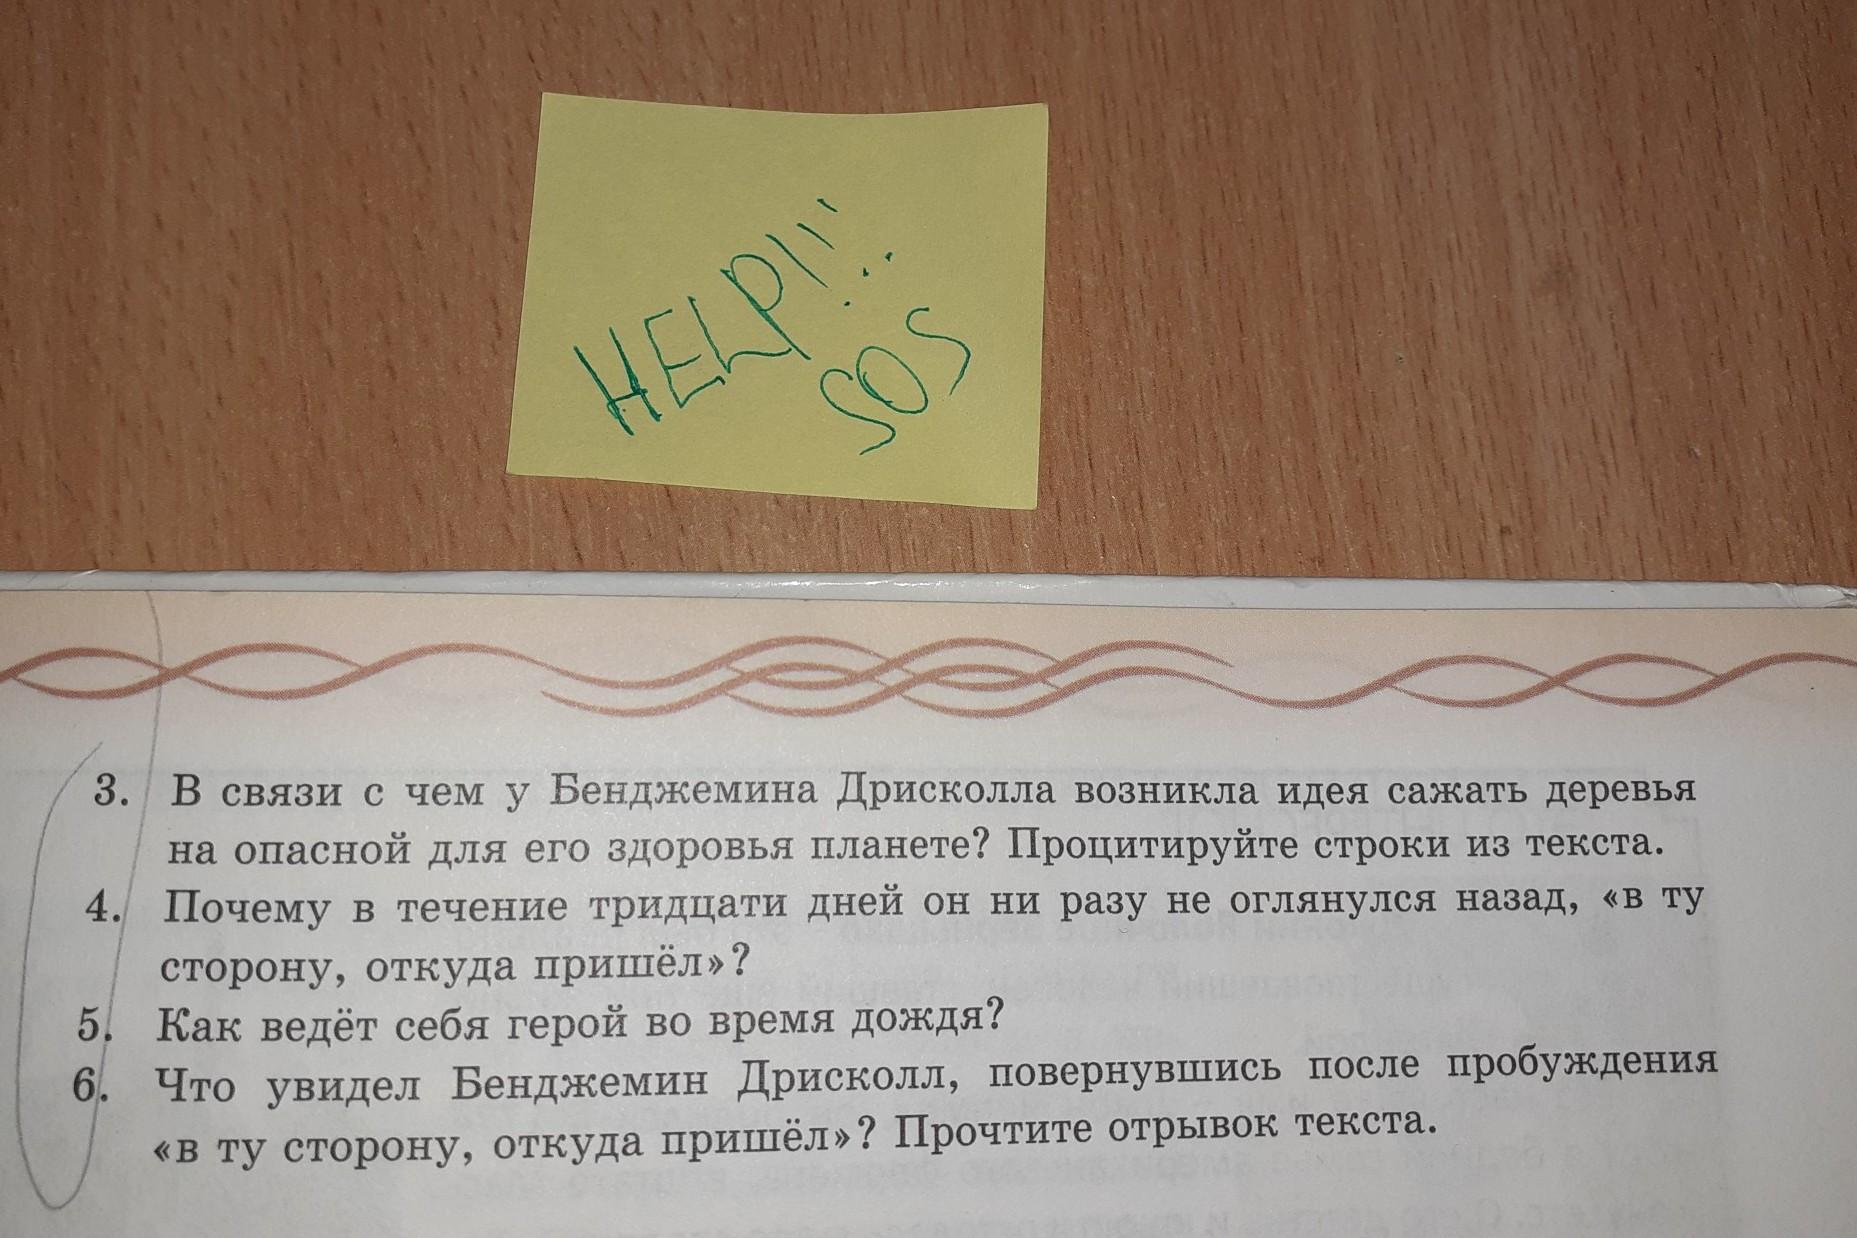 HELP!!!
SOS
3. В связи с чем у Бенджемина Дрисколла возникла идея сажать деревья
на опасной для его здоровья планете? Процитируйте строки из текста.
4. Почему в течение тридцати дней он ни разу не оглянулся назад, «в ту
сторону, откуда пришёл»?
5. Как ведёт себя герой во время дождя?
6. Что увидел Бенджемин Дрисколл, повернувшись после пробуждения
«в ту сторону, откуда пришёл»? Прочтите отрывок текста.